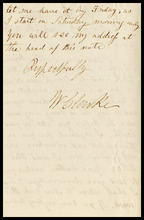 let me have it by Friday, as
I start on Saturday morning early
You will see my address at
the head of this note
Respectfully